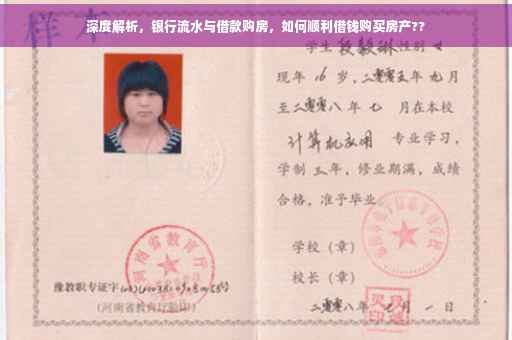 深度解析，银行流水与借款购房，如何顺利借钱购买房产??
样本
学生 段毅琳 性别 女
现年 16 岁，二零零五年 九月
至二零零八年 七 月在本校
计算机应用 专业学习，
学制 三年，修业期满，成绩
合格，准予毕业。
学校（章）
河南省教育厅
校长（章）
豫教职专证字
（河南省教育厅验印）
二零零八年 七 月 一 日